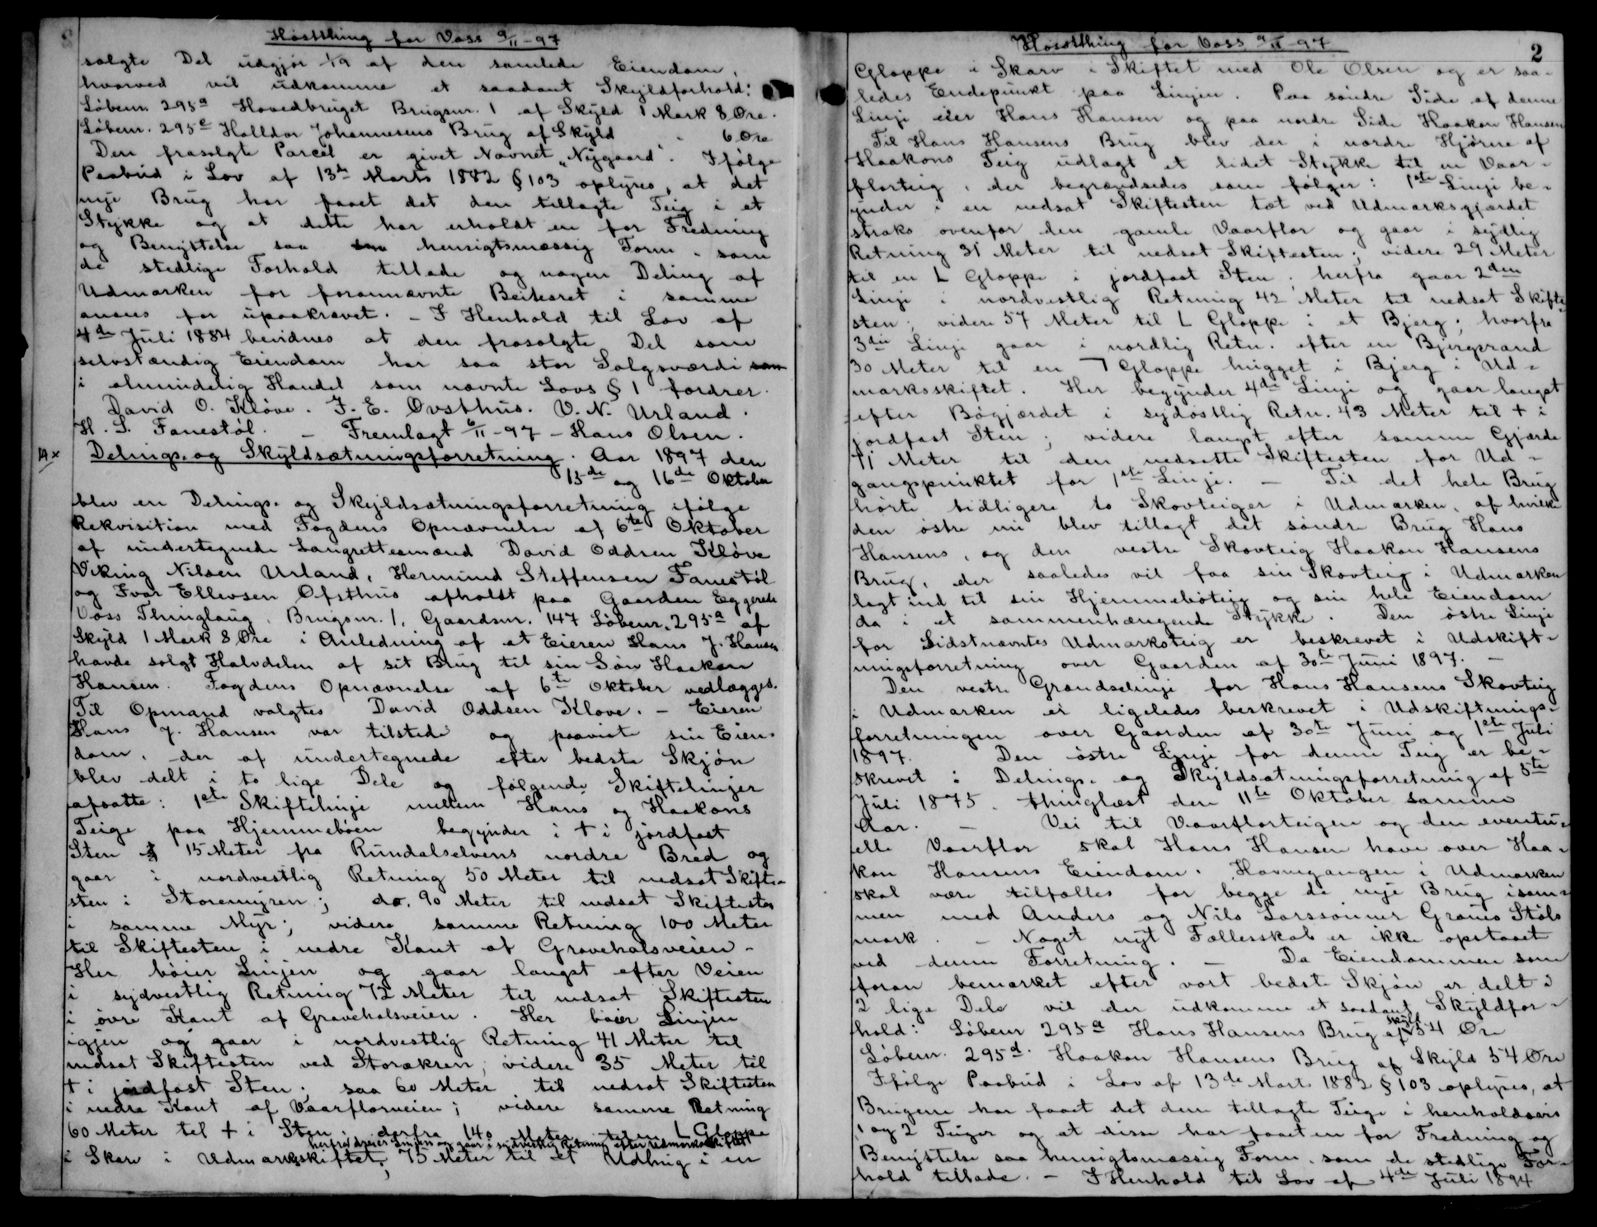 Høstthing for Voss 9/11-97
solgte Del udgjør 1/19 af den samlede Eiendom,
hvorved vil udkomme et saadant Skyldforhold:
Løbenr. 295a Hovedbruget Brugsnr. 1 af Skyld 1 Mark 8 Øre.
Løbenr. 295c Halldor Johannesens Brug af Skyld - 6 Øre
Den frasolgte Parcel er givet Navnet "Nygaard". Ifølge
Paabud i Lov af 13de Marts 1882 § 103 oplyses, at det
nye Brug har faaet det den tillagte Teig i et
Stykke og at dette har erholdt en for Fredning
og Benyttelse saa hensigtsmæssig Form, som
de stedlige Forhold tillade og nogen Deling af
Udmarken for forannævnte Beitesret i samme
ansees for upaakrævet. - I Henhold til Lov af
4de Juli 1884 bevidnes at den frasolgte Del som
selvstændig Eiendom har saa stor Salgsværdi
i almindelig Handel som nævnte Lovs § 1 fordrer.
David O. Kløve. I. E. Øvsthus. V. N. Urland.
H. S. Fanestøl. - Fremlagt 6/11-97 - Hans Olsen.
Delings- og Skyldsætningsforretning. Aar 1897 den
15de og 16de Oktober
blev en Delings- og Skyldsætningsforretning ifølge
Rekvisition med Fogdens Opnævnelse af 6te Oktober
af undertegnede Laugrettesmænd David Oddsen Kløve
Viking Nilsen Urland, Hermund Steffensen Fanestøl
og Ivar Ellevsen Øfsthus afholdt paa Gaarden Eggereide
Voss Thinglaug, Brugsnr. 1, Gaardsnr. 147 Løbenr. 295a af
Skyld 1 Mark 8 Øre i Anledning af at Eieren Hans J. Hansen
havde solgt Halvdelen af sit Brug til sin Søn Haakon
Hansen. Fogdens Opnævnelse af 6te Oktober vedlægges.
Til Opmand valgtes David Oddsen Kløve. - Eieren
Hans J. Hansen var tilstede og paaviste sin Eien-
dom, der af undertegnede efter bedste Skjøn
blev delt i to lige Dele og følgende Skiftelinjer
afsatte: 1ste Skiftelinje mellem Hans og Haakons
Teige paa Hjemmebøen begynder i + i jordfast
Sten 15 Meter fra Rundalselvens nordre Bred og
gaar i nordvestlig Retning 50 Meter til nedsat Skifte-
sten i Storemyren; do. 90 Meter til nedsat Skiftesten
i samme Myr; videre samme Retning 100 Meter
til Skiftesten i nedre Kant af Gravehalsveien -
Her bøier Linjen og gaar langst efter Veien
i sydvestlig Retning 72 Meter til nedsat Skiftesten
i øvre Kant af Gravehalsveien. Her bøier Linjen
igjen og gaar i nordvestlig Retning 41 Meter til
nedsat Skiftesten ved Storakren; videre 35 Meter til
+ i jordfast Sten; saa 60 Meter til nedsat Skiftesten
i nedre Kant af Vaarflorveien; videre samme Retning
60 Meter til + i Sten; derfra 140 Meter til L Gloppe
herfra dreier Linjen og gaar i sydvestlig Retning efter Udmarksskiftet
i Skarv i Udmarkskiftet, 75 Meter til et Udhug i en
Høstthing for Voss 9/11-97
2
Gloppe i Skarv i Skiftet med Ole Olsen og er saa-
ledes Endepunkt paa Linjen. Paa søndre Side af denne
Linje eier Hans Hansen og paa nordre Side Haakon Hansen
Til Hans Hansens Brug blev der i nordre Hjørne af
Haakons Teig udlagt et lidet Stykke til en Vaar-
florteig, der begrændsedes som følger: 1ste Linje be-
gynder i en nedsat Skiftesten tæt ved Udmarksgjærdet
straks ovenfor den gamle Vaarflor og gaar i sydlig
Retning 31 Meter til nedsat Skiftesten; videre 29 Meter
til en L Gloppe i jordfast Sten; herfra gaar 2den
Linje i nordvestlig Retning 42 Meter til nedsat Skifte-
sten; videre 57 Meter til L Gloppe i et Bjerg; hvorfra
3die Linje gaar i nordlig Retn. efter en Bjergrand
30 Meter til en ⅂ Gloppe hugget i Bjerg i Ud-
marksskiftet. Her begynder 4de Linje og gaar langst
efter Bøgjærdet i sydøstlig Retn. 43 Meter til + i
jordfast Sten; videre langst efter samme Gjærde
71 Meter til den nedsatte Skiftesten for Ud-
gangspunktet for 1ste Linje. - Til det hele Brug
hørte tidligere to Skovteiger i Udmarken, af hvilke
den østre nu blev tillagt det søndre Brug Hans
Hansens, og den vestre Skovteig Haakon Hansens
Brug, der saaledes vil faa sin Skovteig i Udmarken
lagt ind til sin Hjemmebøteig og sin hele Eiendom
da i et sammenhængende Stykke. Den østre Linje
for Sidstnævntes Udmarksteig er beskrevet i Udskift-
ningsforretning over Gaarden af 30te Juni 1897. -
Den vestre Grændselinje for Hans Hansens Skovteig
i Udmarken er ligeledes beskrevet i Udskiftnings-
forretningen over Gaarden af 30te Juni og 1ste Juli
1897. Den østre Linje for denne Teig er be-
skrevet i Delings- og Skyldsætningsforretning af 5te
Juli 1875, thinglæst den 11te Oktober samme
Aar. - Vei til Vaarflorteigen og den eventu-
elle Vaarflor skal Hans Hansen have over Haa-
kon Hansens Eiendom. Havnegangen i Udmarken
skal være tilfælles for begge de nye Brug isam-
men med Anders og Nils Larssønner Grønes Støls
mark. - Noget nyt Fællesskab er ikke opstaaet
ved denne Forretning. - Da Eiendommen som
foran bemærket efter vort bedste Skjøn er delt i
2 lige Dele vil der udkomme et saadant Skyldfor-
hold: Løbenr 295a Hans Hansens Brug af Skyld 54 Øre
Løbenr. 295d. Haakon Hansens Brug af Skyld 54 Øre
Ifølge Paabud i Lov af 13de Marts 1882 § 103 oplyses, at
Brugene har faaet det dem tillagte Teige i henholdsvis
1 og 2 Teiger og at disse har faaet en for Fredning og
Benyttelse saa hensigtsmæssig Form, som de stedlige For-
hold tillade. - I Henhold til Lov af 4de Juli 1894